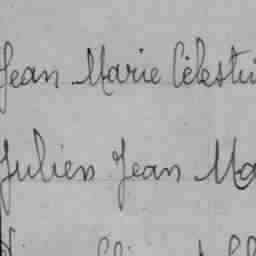 Jean Marie Célesti
Julien Jean Ma